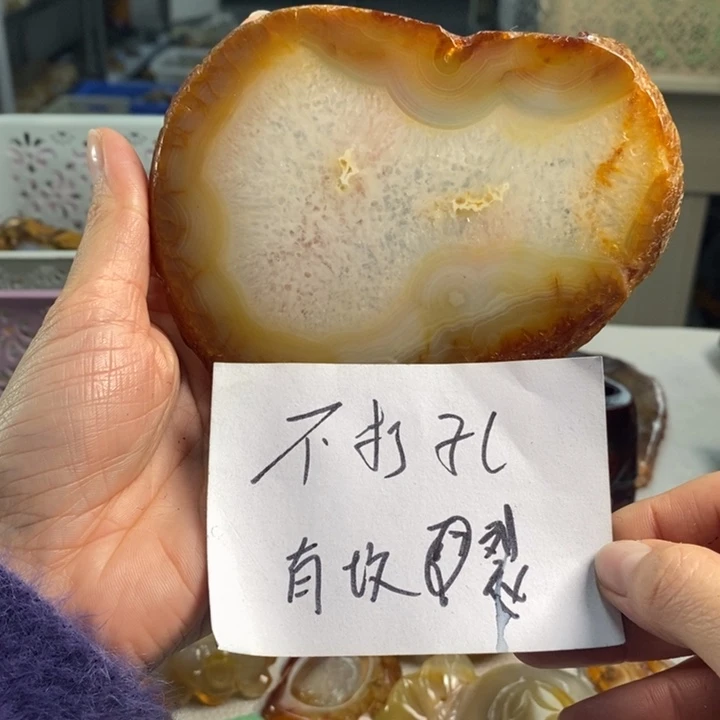 不打孔
有坎裂